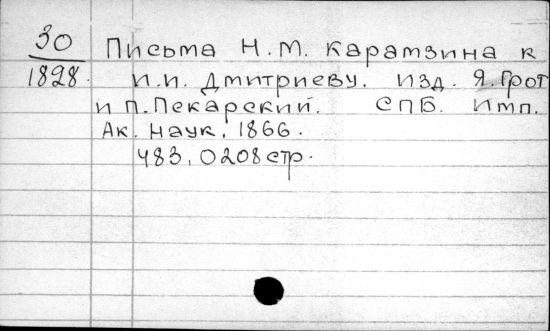 30
1828.
Письма Н.М. Карамзина к
И.И. Дмитриеву. Изд. Я.Грот
и П.Пекарский. СПБ. Имп.
Ак. Наук, 1866.
483, 0208 стр.